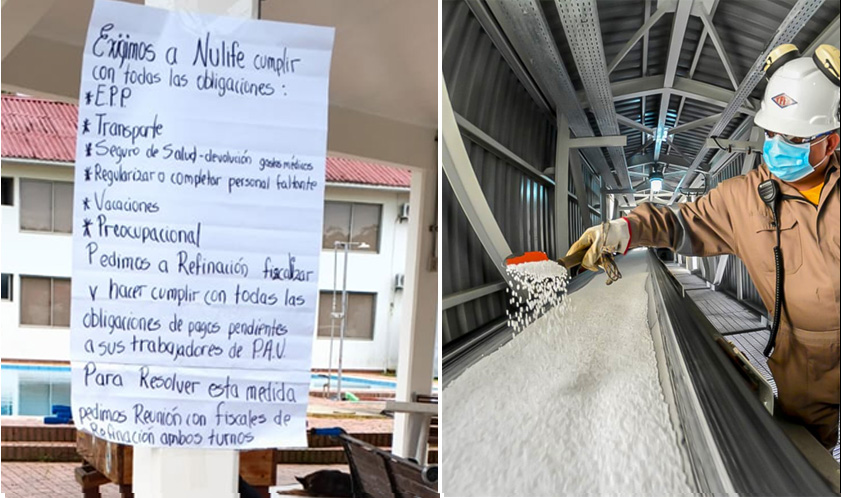 Exijimos a Nulife cumplir
con todas las obligaciones :
* E.P.P
* Transporte
* Seguro de Salud - devolución gastos médicos
* Regularizar o completar personal faltante
* Vacaciones
* Preocupacional
Pedimos a Refinación fiscalizar
y hacer cumplir con todas las
obligaciones de pagos pendientes
a sus trabajadores de P.A.U.
Para Resolver esta medida
pedimos Reunión con fiscales de
Refinación ambos turnos